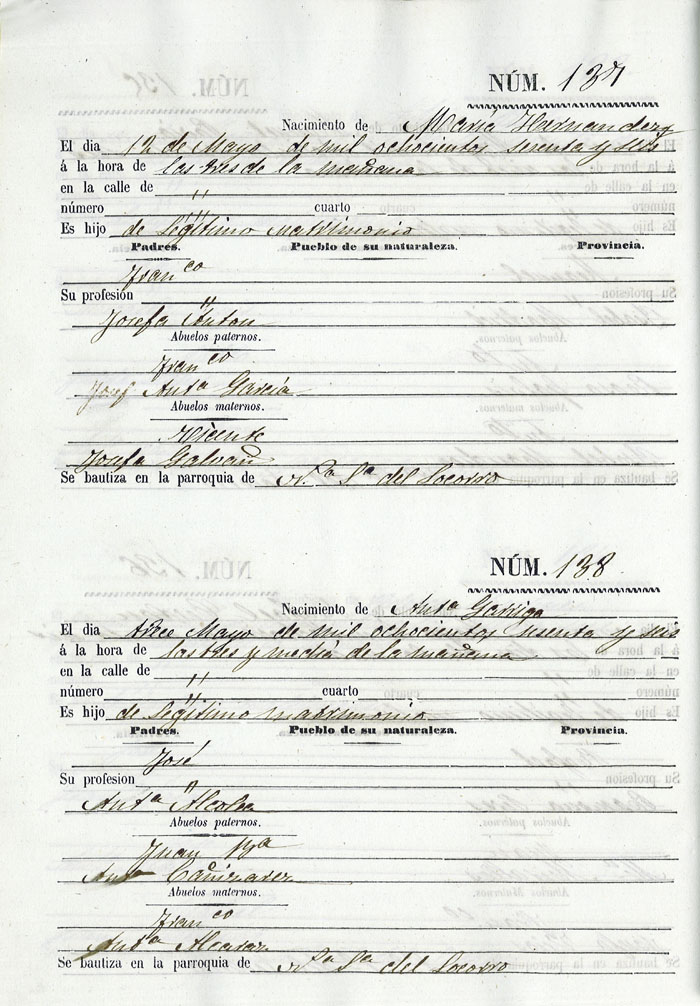 NÚM. 137
Nacimiento de María Hernandez
El dia 12 de Mayo de mil ochocientos sesenta y seis
á la hora de las tres de la mañana
en la calle de "
número " cuarto
Es hijo de legítimo matrimonio
Padres. Pueblo de su naturaleza. Provincia.
Franco
Su profesión "
Josefa Anton
Abuelos paternos.
Franco
Josef Anta García
Abuelos maternos.
Vicente
Josefa Galvañ
Se bautiza en la parroquia de N.a S.a del Socorro
NÚM. 138
Nacimiento de Anta Garriga
El dia trece Mayo de mil ochocientos sesenta y seis
á la hora de las tres y media de la mañana
en la calle de "
número " cuarto
Es hijo de legítimo matrimonio
Padres. Pueblo de su naturaleza. Provincia.
José
Su profesion "
Anta Alcolea
Abuelos paternos.
Juan Bta
Anta Cañizares
Abuelos maternos.
Franco
Anta Alcaraz
Se bautiza en la parroquia de N.a S.a del Socorro